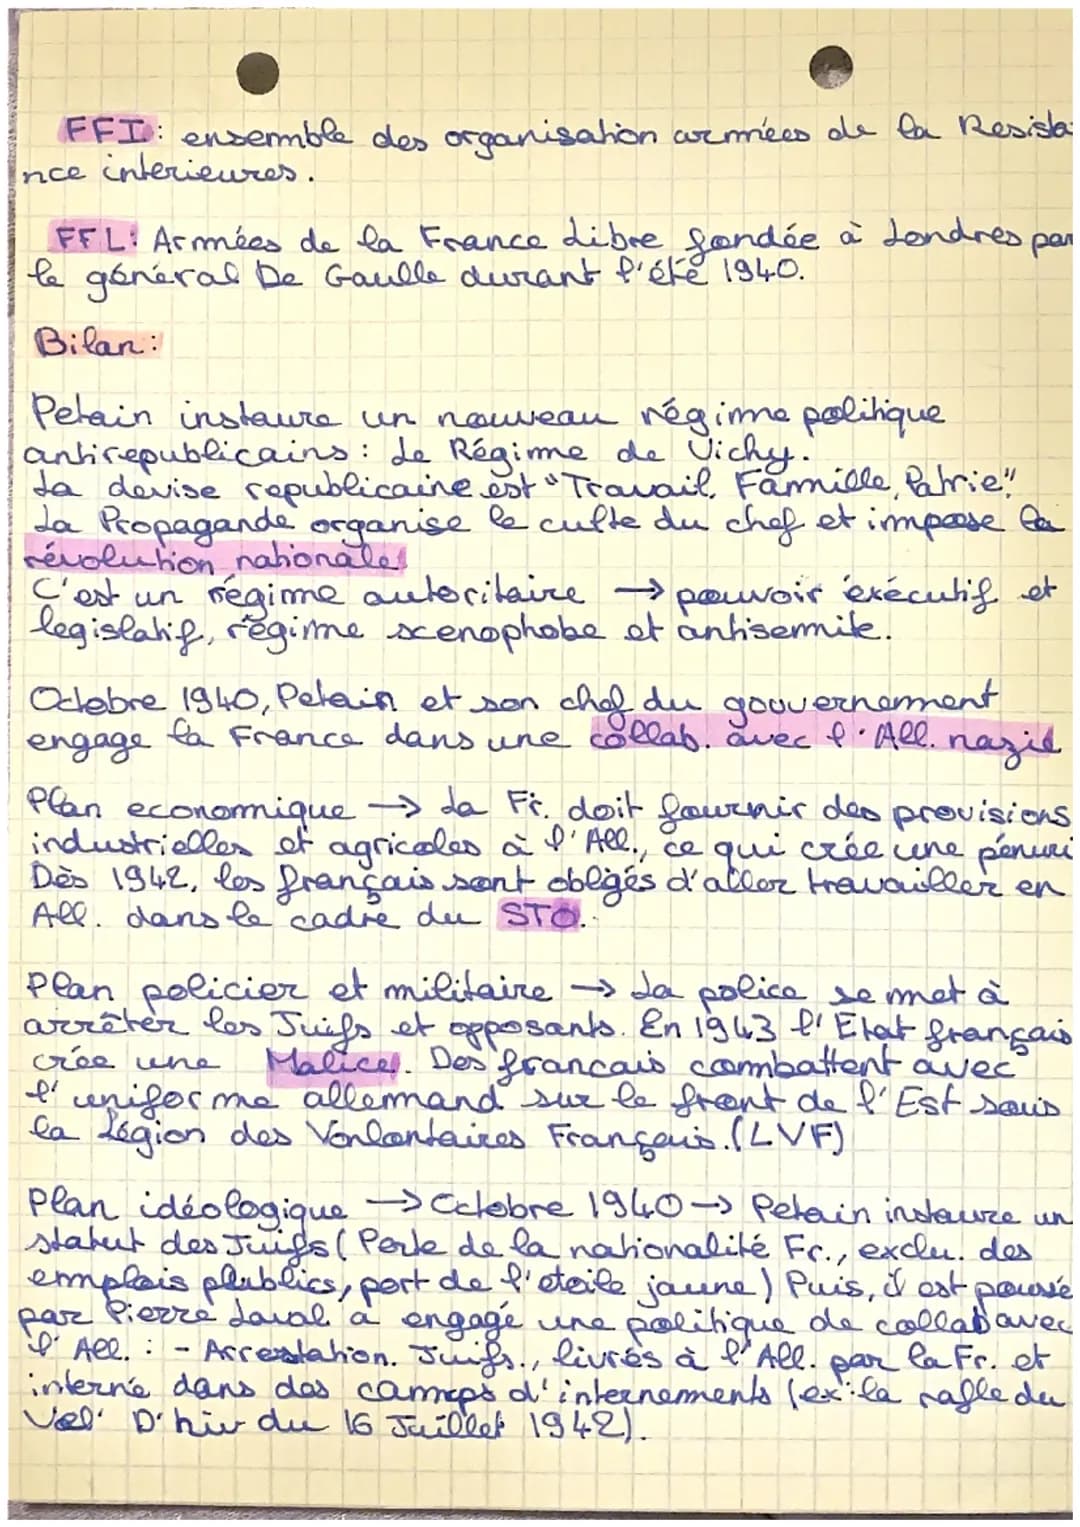 FFI: ensemble des organisation armées de la Resista
nce interieures.
FFL: Armées de la France Libre fondée à Londres par
le général De Gaulle durant l'été 1940.
Bilan:
Petain instaure un nouveau régime politique
antirepublicains: Le Régime de Vichy.
La devise republicaine est "Travail, Famille, Patrie"
La Propagande organise le culte du chef et impose la
révolution nationale
C'est un régime autoritaire → pouvoir éxécutif et
legislatif, régime scenophobe et antisemite.
Octobre 1940, Petain et son chef du gouvernement
engage la France dans une collab. avec l'All. nazie
Plan economique → La Fr. doit fournir des provisions
industrielles et agricoles à l'All., ce qui crée une pénuri
Dès 1942, les français sont obligés d'aller travailler en
All. dans le cadre du STO.
Plan policier et militaire → La police se met à
arrêter les Juifs et opposants. En 1943 l'Etat français
crée une Malice. Des francais combattent avec
l'uniforme allemand sur le front de l'Est sous
la Légion des Vonlontaires Français. (LVF)
Plan idéologique → Octobre 1940 → Petain instaure un
statut des Juifs (Perte de la nationalité Fr., exclu. des
emplois plublics, port de l'etoile jaune) Puis, il est poussé
par Pierre Laval a engagé une politique de collab avec
l'All. : - Arrestation. Juifs., livrés à l'All. par la Fr. et
interné dans des camps d'internements (ex: la rafle du
Vel' D'hiv du 16 Juillet 1942).